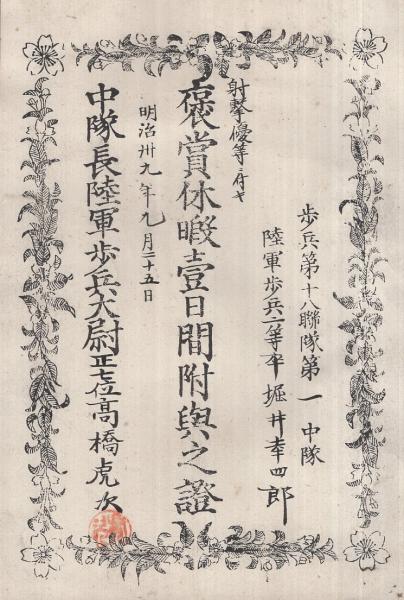 歩兵第十八聯隊第一中隊
陸軍歩兵一等卒堀井幸四郎
射撃優等ニ付キ
褒賞休暇壹日間附與之證
明治卅九年九月二十五日
中隊長陸軍歩兵大尉正七位高橋虎次